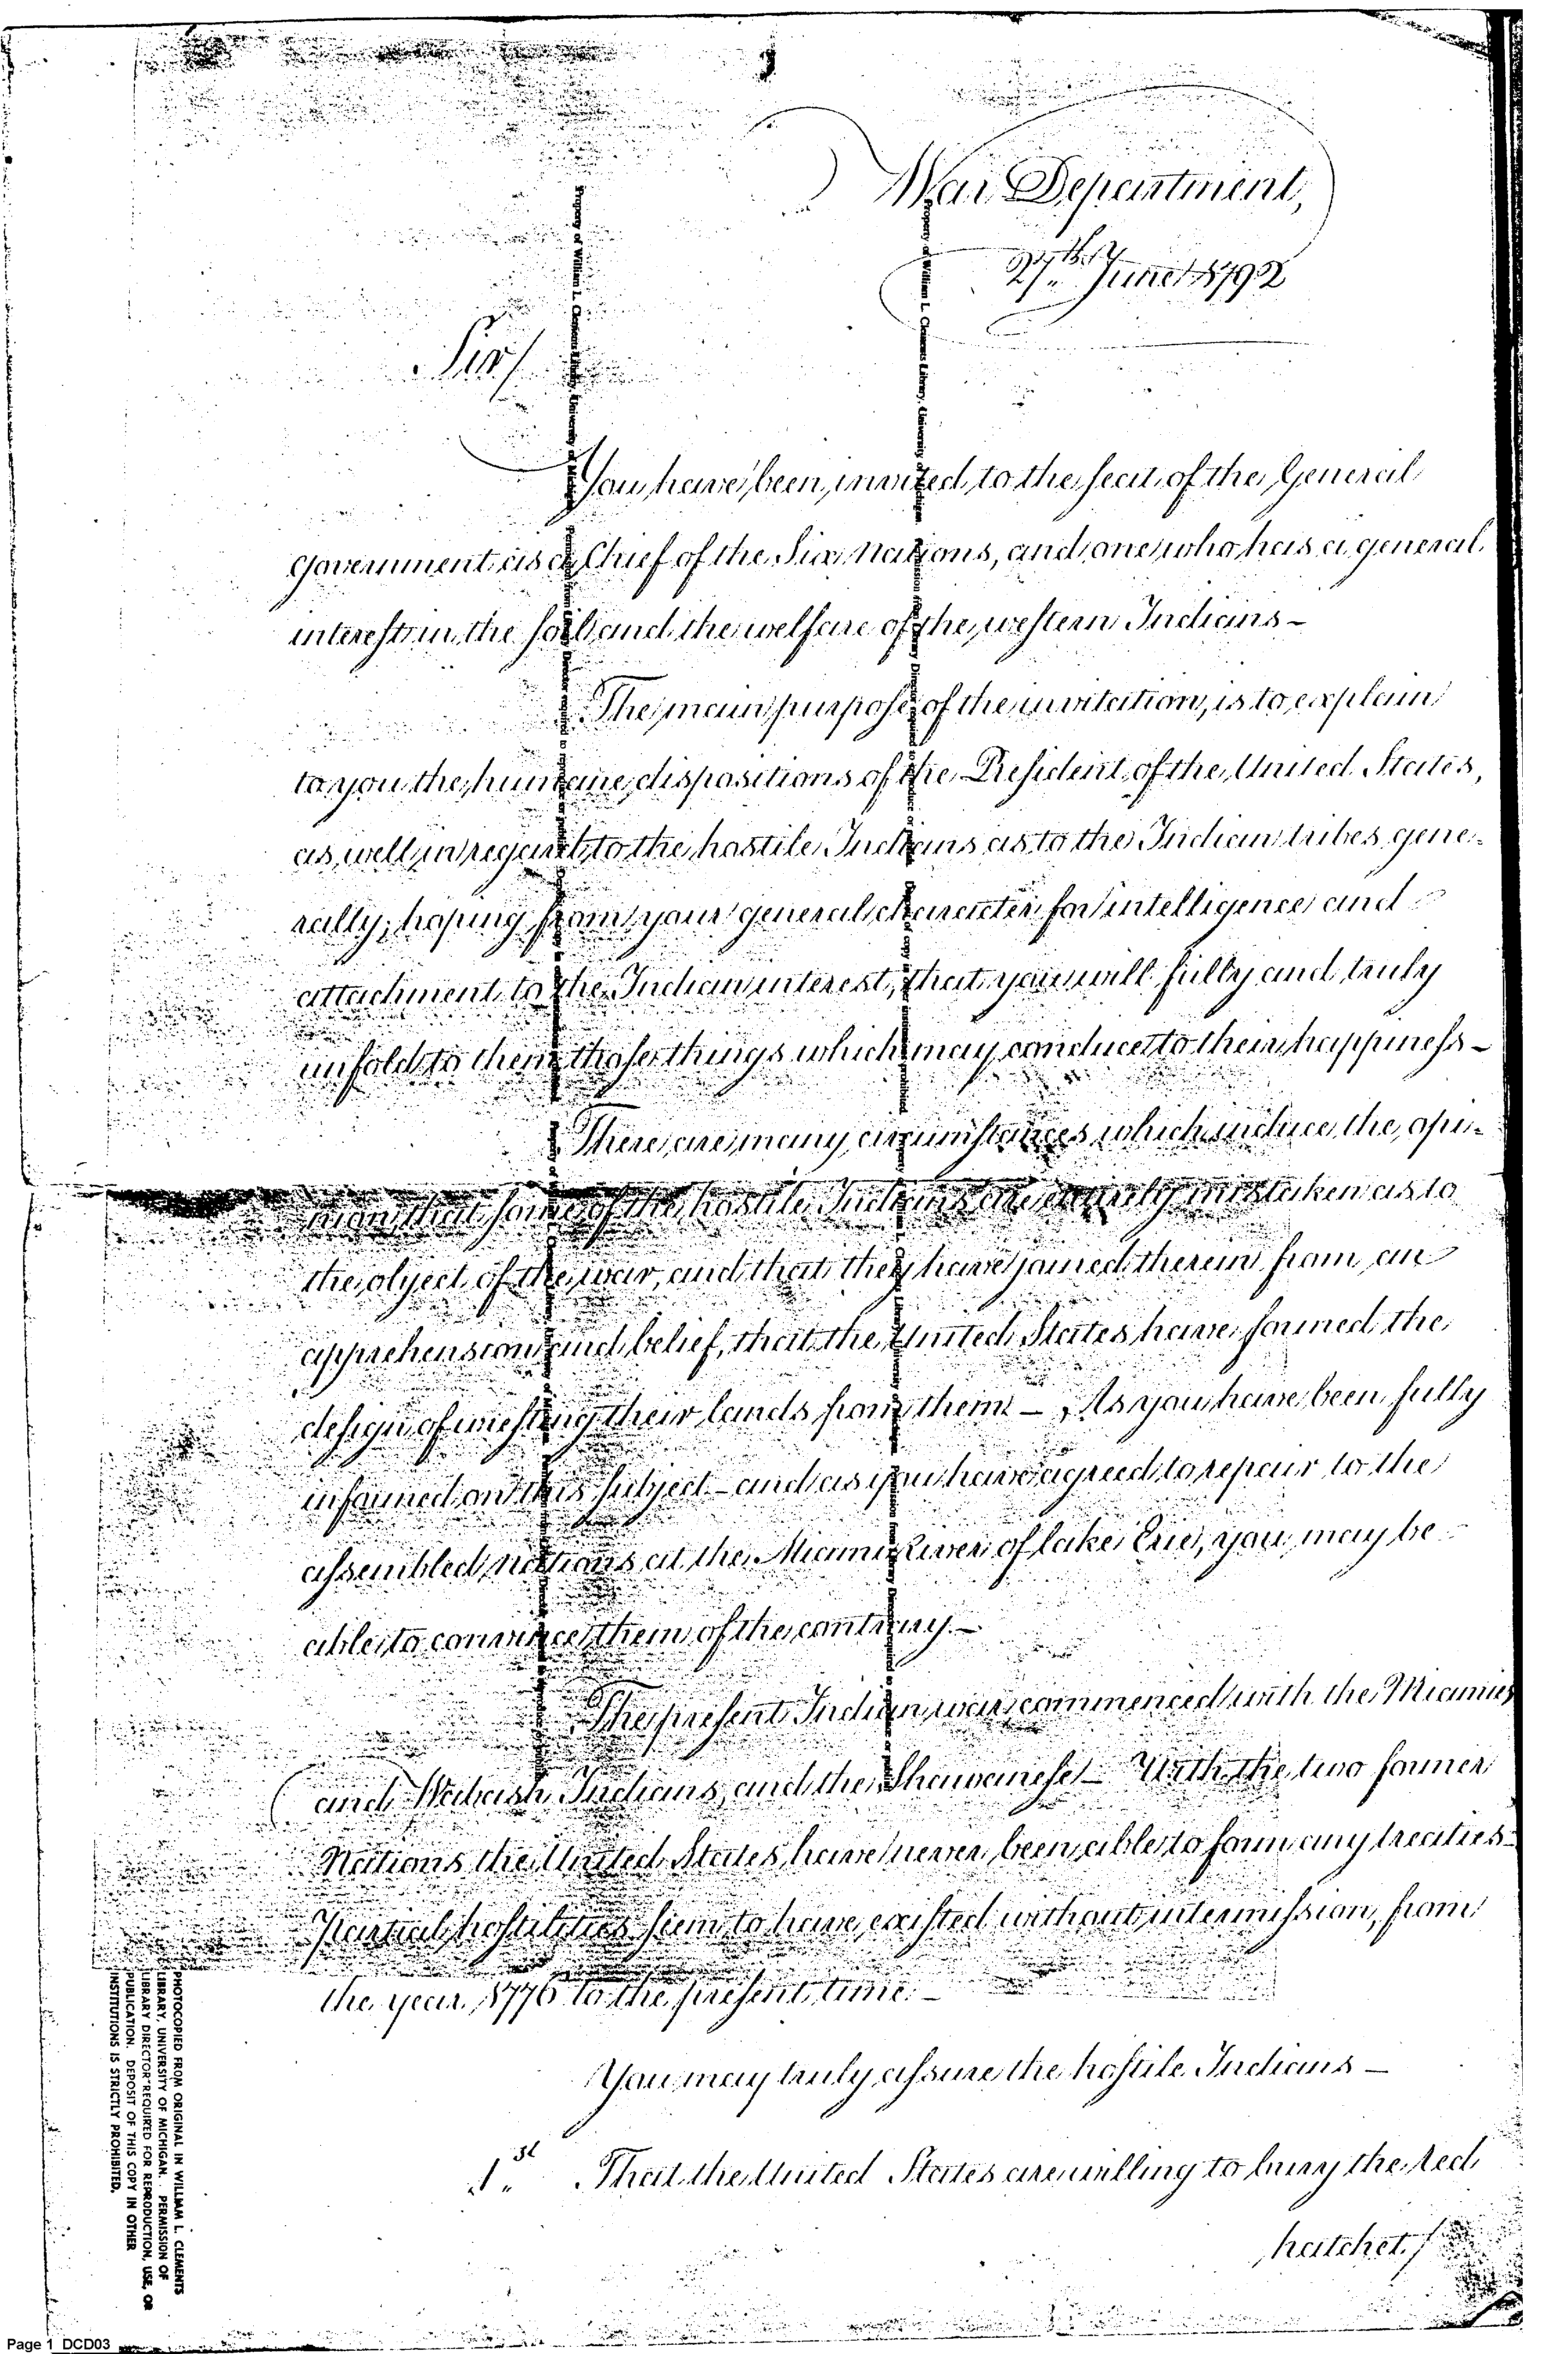 War Department,
27th June 1792
Sir/
You have been invited to the seat of the General
government as a Chief of the Six Nations, and one who has a general
interest in the soil and the welfare of the western Indians –
The main purpose of the invitation, is to explain
to you the humane dispositions of the President of the United States,
as well in regard to the hostile Indians as to the Indian tribes gene-
rally; hoping from your general character for intelligence and
attachment to the Indian interest, that you will fully and truly
unfold to them those things which may conduce to their happiness –
There are many circumstances which induce the opi-
nion that some of the hostile Indians are entirely mistaken as to
the object of the war, and that they have joined therein from an
apprehension and belief, that the United States have formed the
design of wresting their lands from them – As you have been fully
informed on this subject – and as you have agreed to repair to the
assembled nations at the Miami River of lake Erie, you may be
able to convince them of the contrary. –
The present Indian war commenced with the Miamies
and Wabash Indians, and the Shawanese – With the two former
Nations the United States have never been able to form any treaties –
Partial hostilities seem to have existed without intermission, from
the year 1776 to the present time. –
You may truly assure the hostile Indians –
1st That the United States are willing to bury the red
hatchet /
PHOTOCOPIED FROM ORIGINAL IN WILLIAM L. CLEMENTS
LIBRARY, UNIVERSITY OF MICHIGAN. PERMISSION OF
LIBRARY DIRECTOR REQUIRED FOR REPRODUCTION, USE, OR
PUBLICATION. DEPOSIT OF THIS COPY IN OTHER
INSTITUTIONS IS STRICTLY PROHIBITED.
Page 1 DCD03